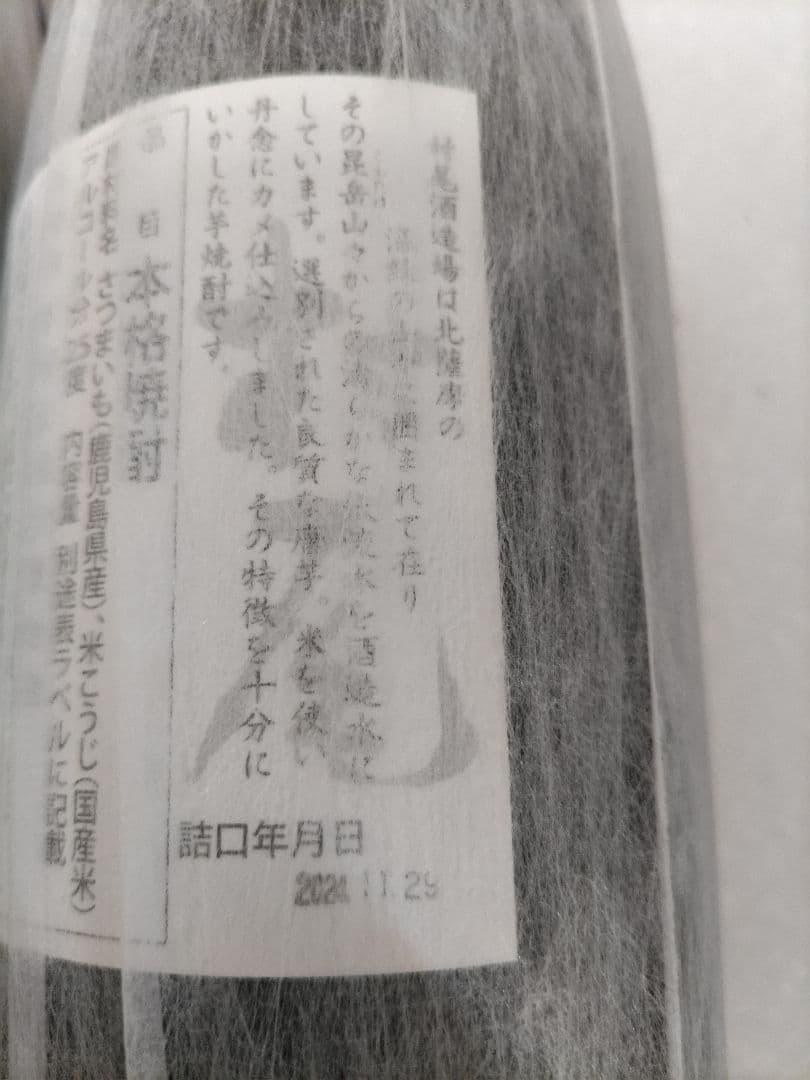 村尾酒造場は北薩摩の
温緑の山々に囲まれて在り
その昆岳山々からの清らかな伏流水を酒造水に
しています。選別された良質な唐芋。米を使い
丹念にカメ仕込みしました。その特徴を十分に
いかした芋焼酎です。
詰口年月日
2024.11.29
品目 本格焼酎
原材料名 さつまいも(鹿児島県産)、米こうじ(国産米)
アルコール分25度 内容量 別途表ラベルに記載